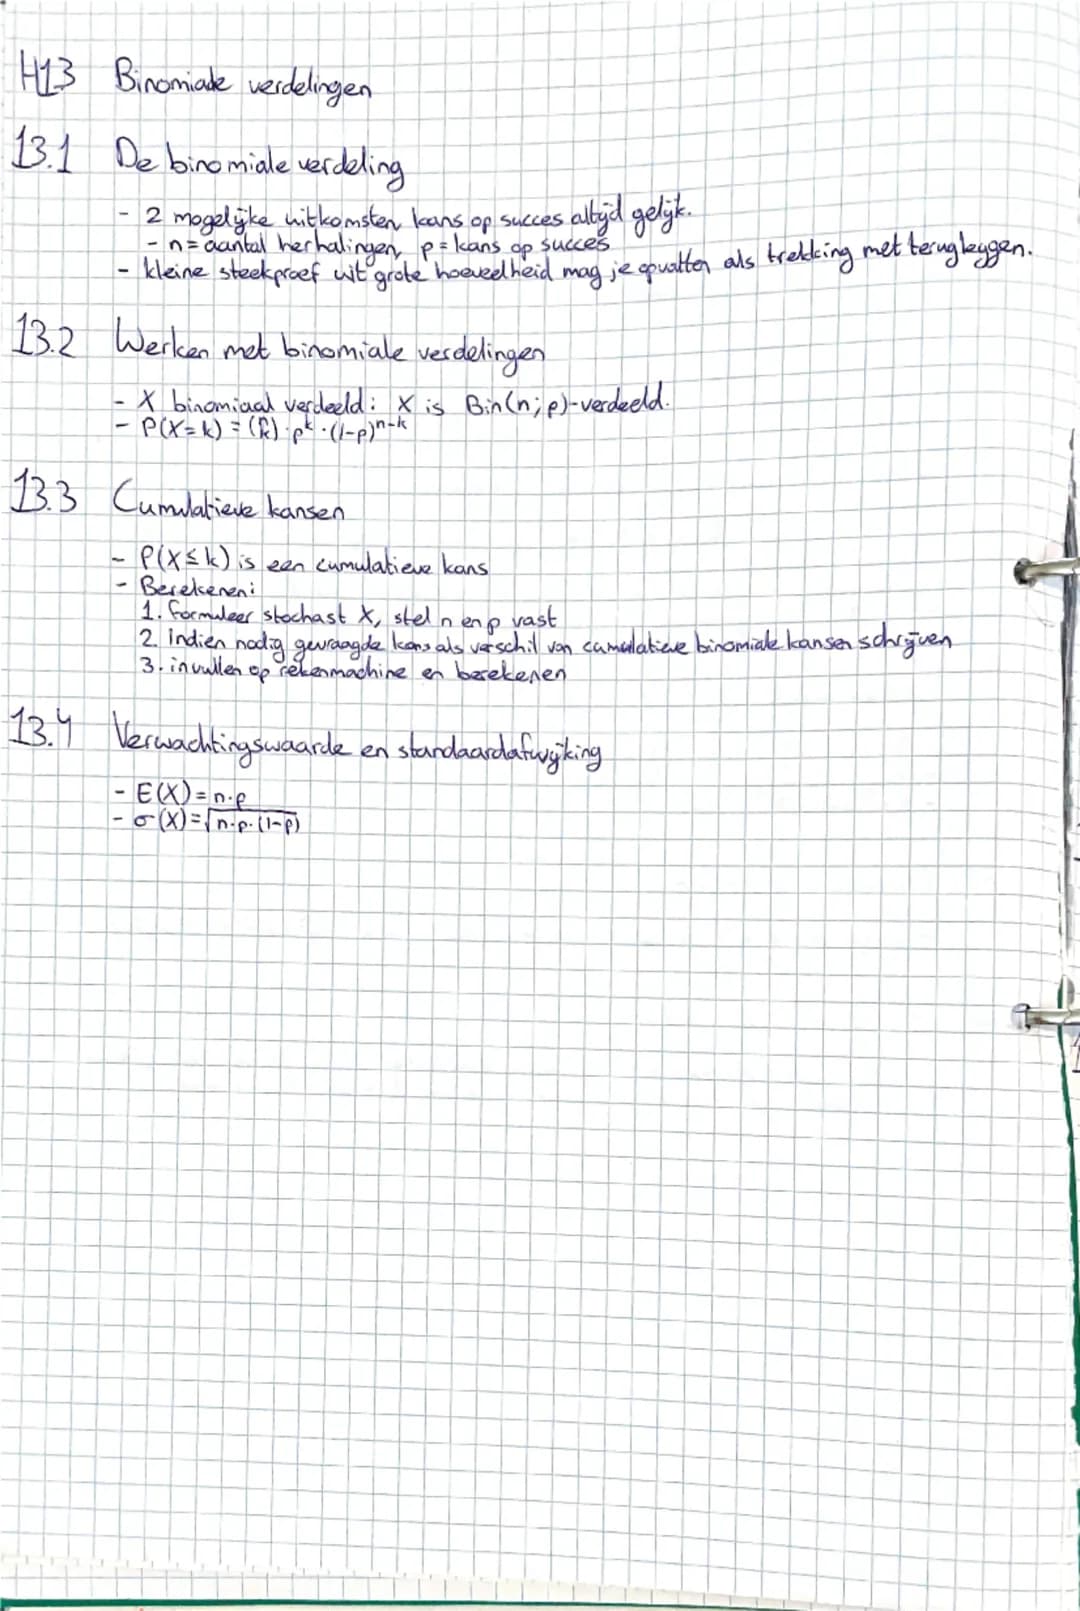 H13 Binomiale verdelingen
13.1 De binomiale verdeling
- 2 mogelijke uitkomsten, kans op succes altijd gelijk.
- n = aantal herhalingen, p = kans op succes
- kleine steekproef uit grote hoeveelheid mag je opvatten als trekking met terugleggen.
13.2 Werken met binomiale verdelingen
- X binomiaal verdeeld: X is Bin(n;p)-verdeeld.
- P(X=k) = (n k) · p^k · (1-p)^n-k
13.3 Cumulatieve kansen
- P(X≤k) is een cumulatieve kans
- Berekenen:
1. formuleer stochast X, stel n en p vast
2. indien nodig gevraagde kans als verschil van cumulatieve binomiale kansen schrijven
3. invullen op rekenmachine en berekenen
13.4 Verwachtingswaarde en standaardafwijking
- E(X) = n·p
- σ(X) = √n·p·(1-p)